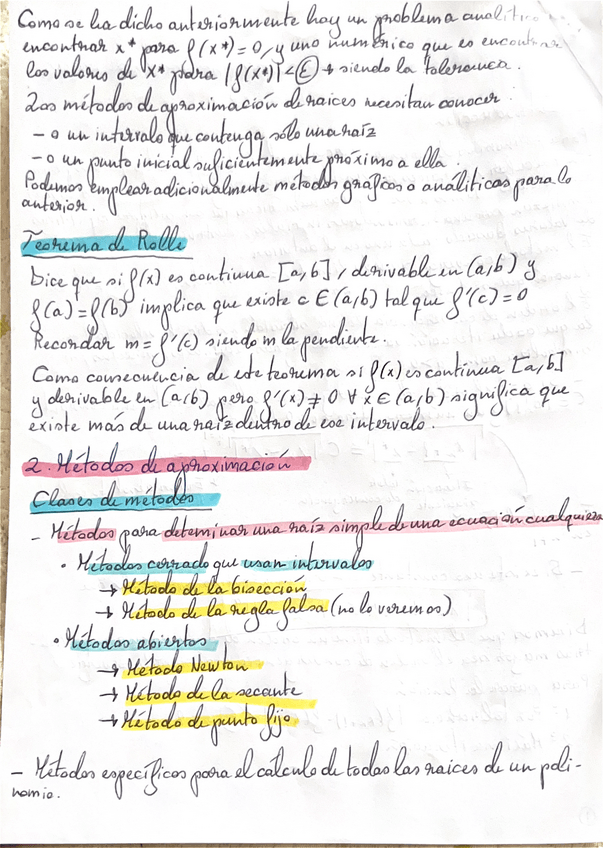 Como se ha dicho anteriormente hay un problema analític
encontrar x* para f(x*)=0, y uno numérico que es encontrar
los valores de x* para |f(x*)|<ε → siendo la tolerancia.
Los métodos de aproximación de raices necesitan conocer:
- o un intervalo que contenga sólo una raíz
- o un punto inicial suficientemente próximo a ella.
Podemos emplear adicionalmente métodos gráficos o análiticas para lo
anterior.
Teorema de Rolle
Dice que si f(x) es continua [a,b], derivable en (a,b) y
f(a)=f(b) implica que existe c ∈ (a,b) tal que f'(c)=0
Recordar m=f'(c) siendo m la pendiente.
Como consecuencia de este teorema si f(x) es continua [a,b]
y derivable en (a,b) pero f'(x)≠0 ∀ x ∈ (a,b) significa que
existe más de una raíz dentro de ese intervalo.
2. Métodos de aproximación
Clases de métodos
- Métodos para determinar una raíz simple de una ecuación cualquiera
• Métodos cerrado que usan intervalos
→ Método de la bisección
→ Método de la regla falsa (no lo veremos)
• Métodos abiertos
→ Método Newton
→ Método de la secante
→ Método de punto fijo
- Métodos específicos para el cálculo de todas las raices de un poli-
nomio.